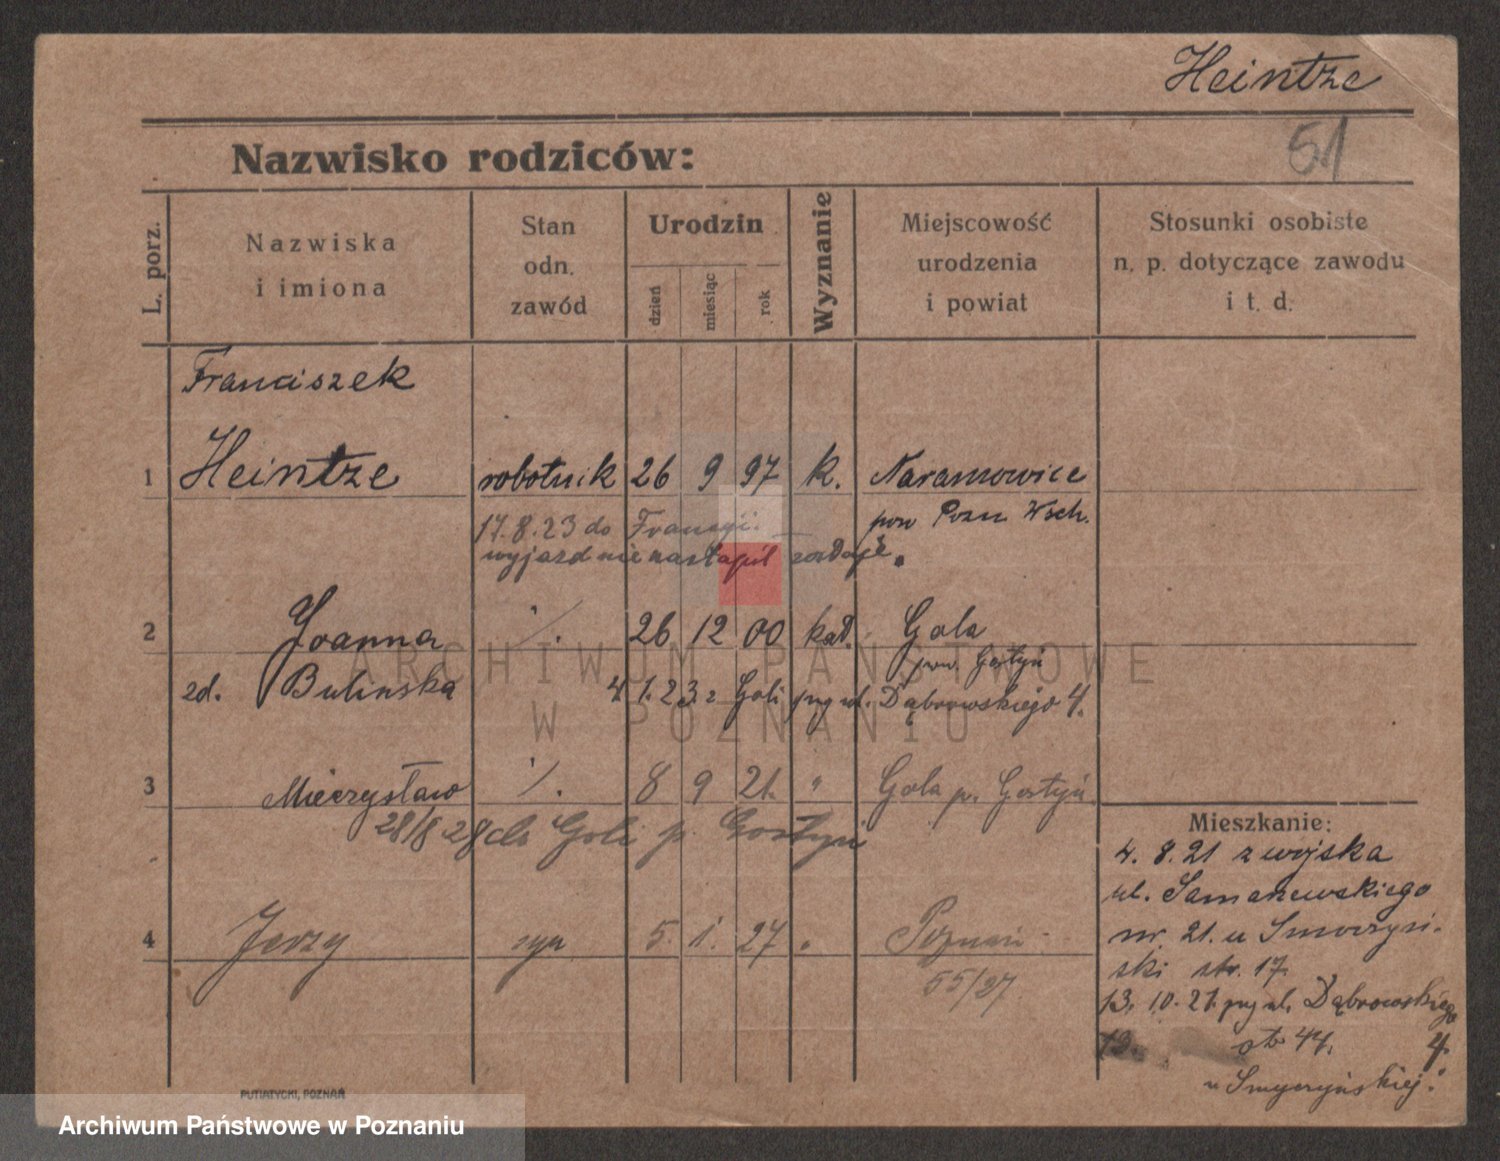 Heintze
51
Nazwisko rodziców:
L. porz.
Nazwiska
i imiona
Stan
odn.
zawód
Urodzin
dzień
miesiąc
rok
Wyznanie
Miejscowość
urodzenia
i powiat
Stosunki osobiste
n. p. dotyczące zawodu
i t. d.
Franciszek
1 Heintze robotnik 26 9 97 k. Naramowice
pow Pozn Wsch.
17.8.23 do Francji.
wyjazd nie nastąpił
2 Joanna ./. 26 12 00 kat. Gola
pow. Gostyń
zd. Bulinska 4.1.23. z Goli przy ul. Dąbrowskiego 4.
3 Mieczysław ./. 8 9 21. " Gola p. Gostyń
28/8 28 do Goli p. Gostyń
4 Jerzy syn 5. 1. 27 " Poznań
55/27
Mieszkanie:
4. 8. 21 z wojska
ul. Szamarzewskiego
nr. 21. u Smoczyń-
ski str. 17.
13. 10. 21. przy ul. Dąbrowskiego
19. str 44. 4.
PUTIATYCKI, POZNAŃ
ARCHIWUM PAŃSTWOWE
W POZNANIU
Archiwum Państwowe w Poznaniu